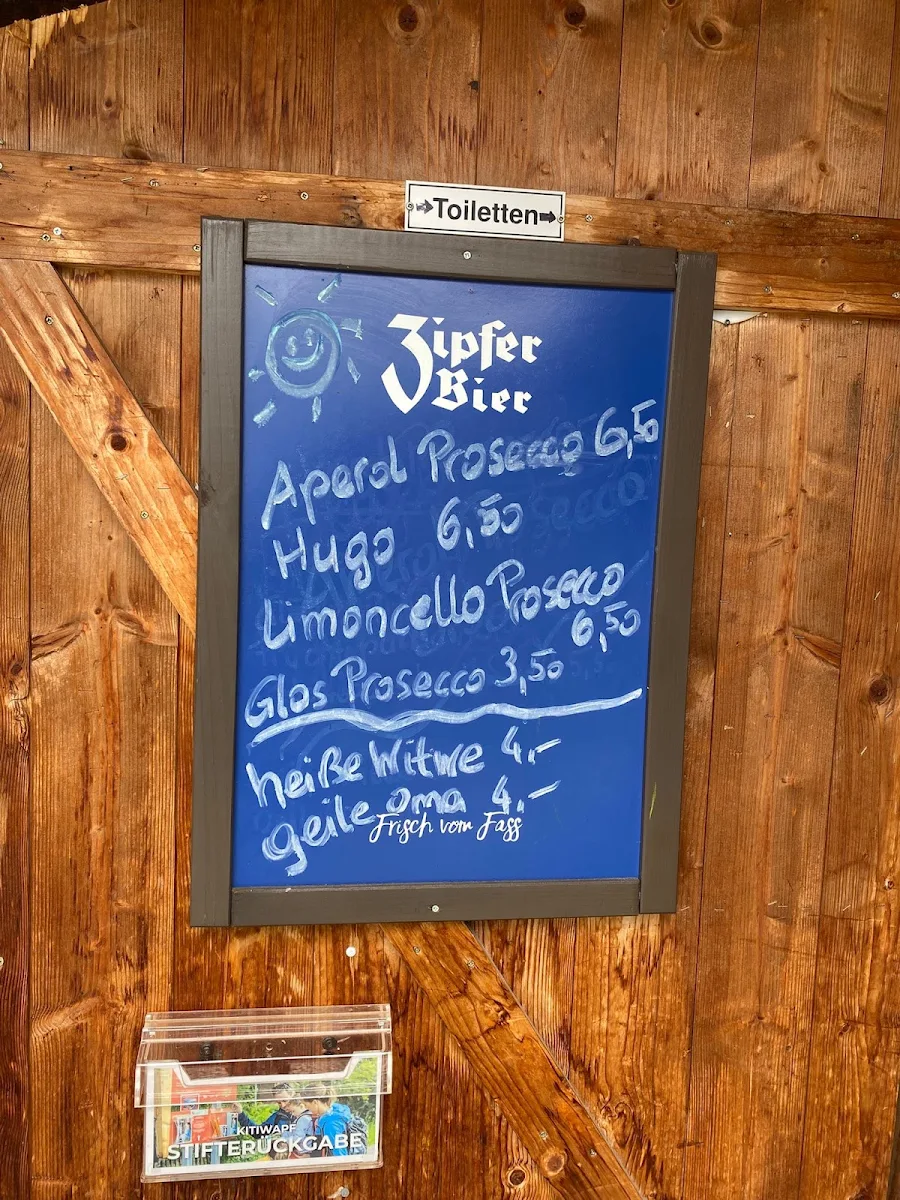 Toiletten
Zipfer
Bier
Aperol Prosecco 6,50
Hugo 6,50
Limoncello Prosecco
6,50
Glas Prosecco 3,50
heiße Witwe 4.-
geile Oma 4.-
Frisch vom Fass
KITIWAPF
STIFTERÜCKGABE